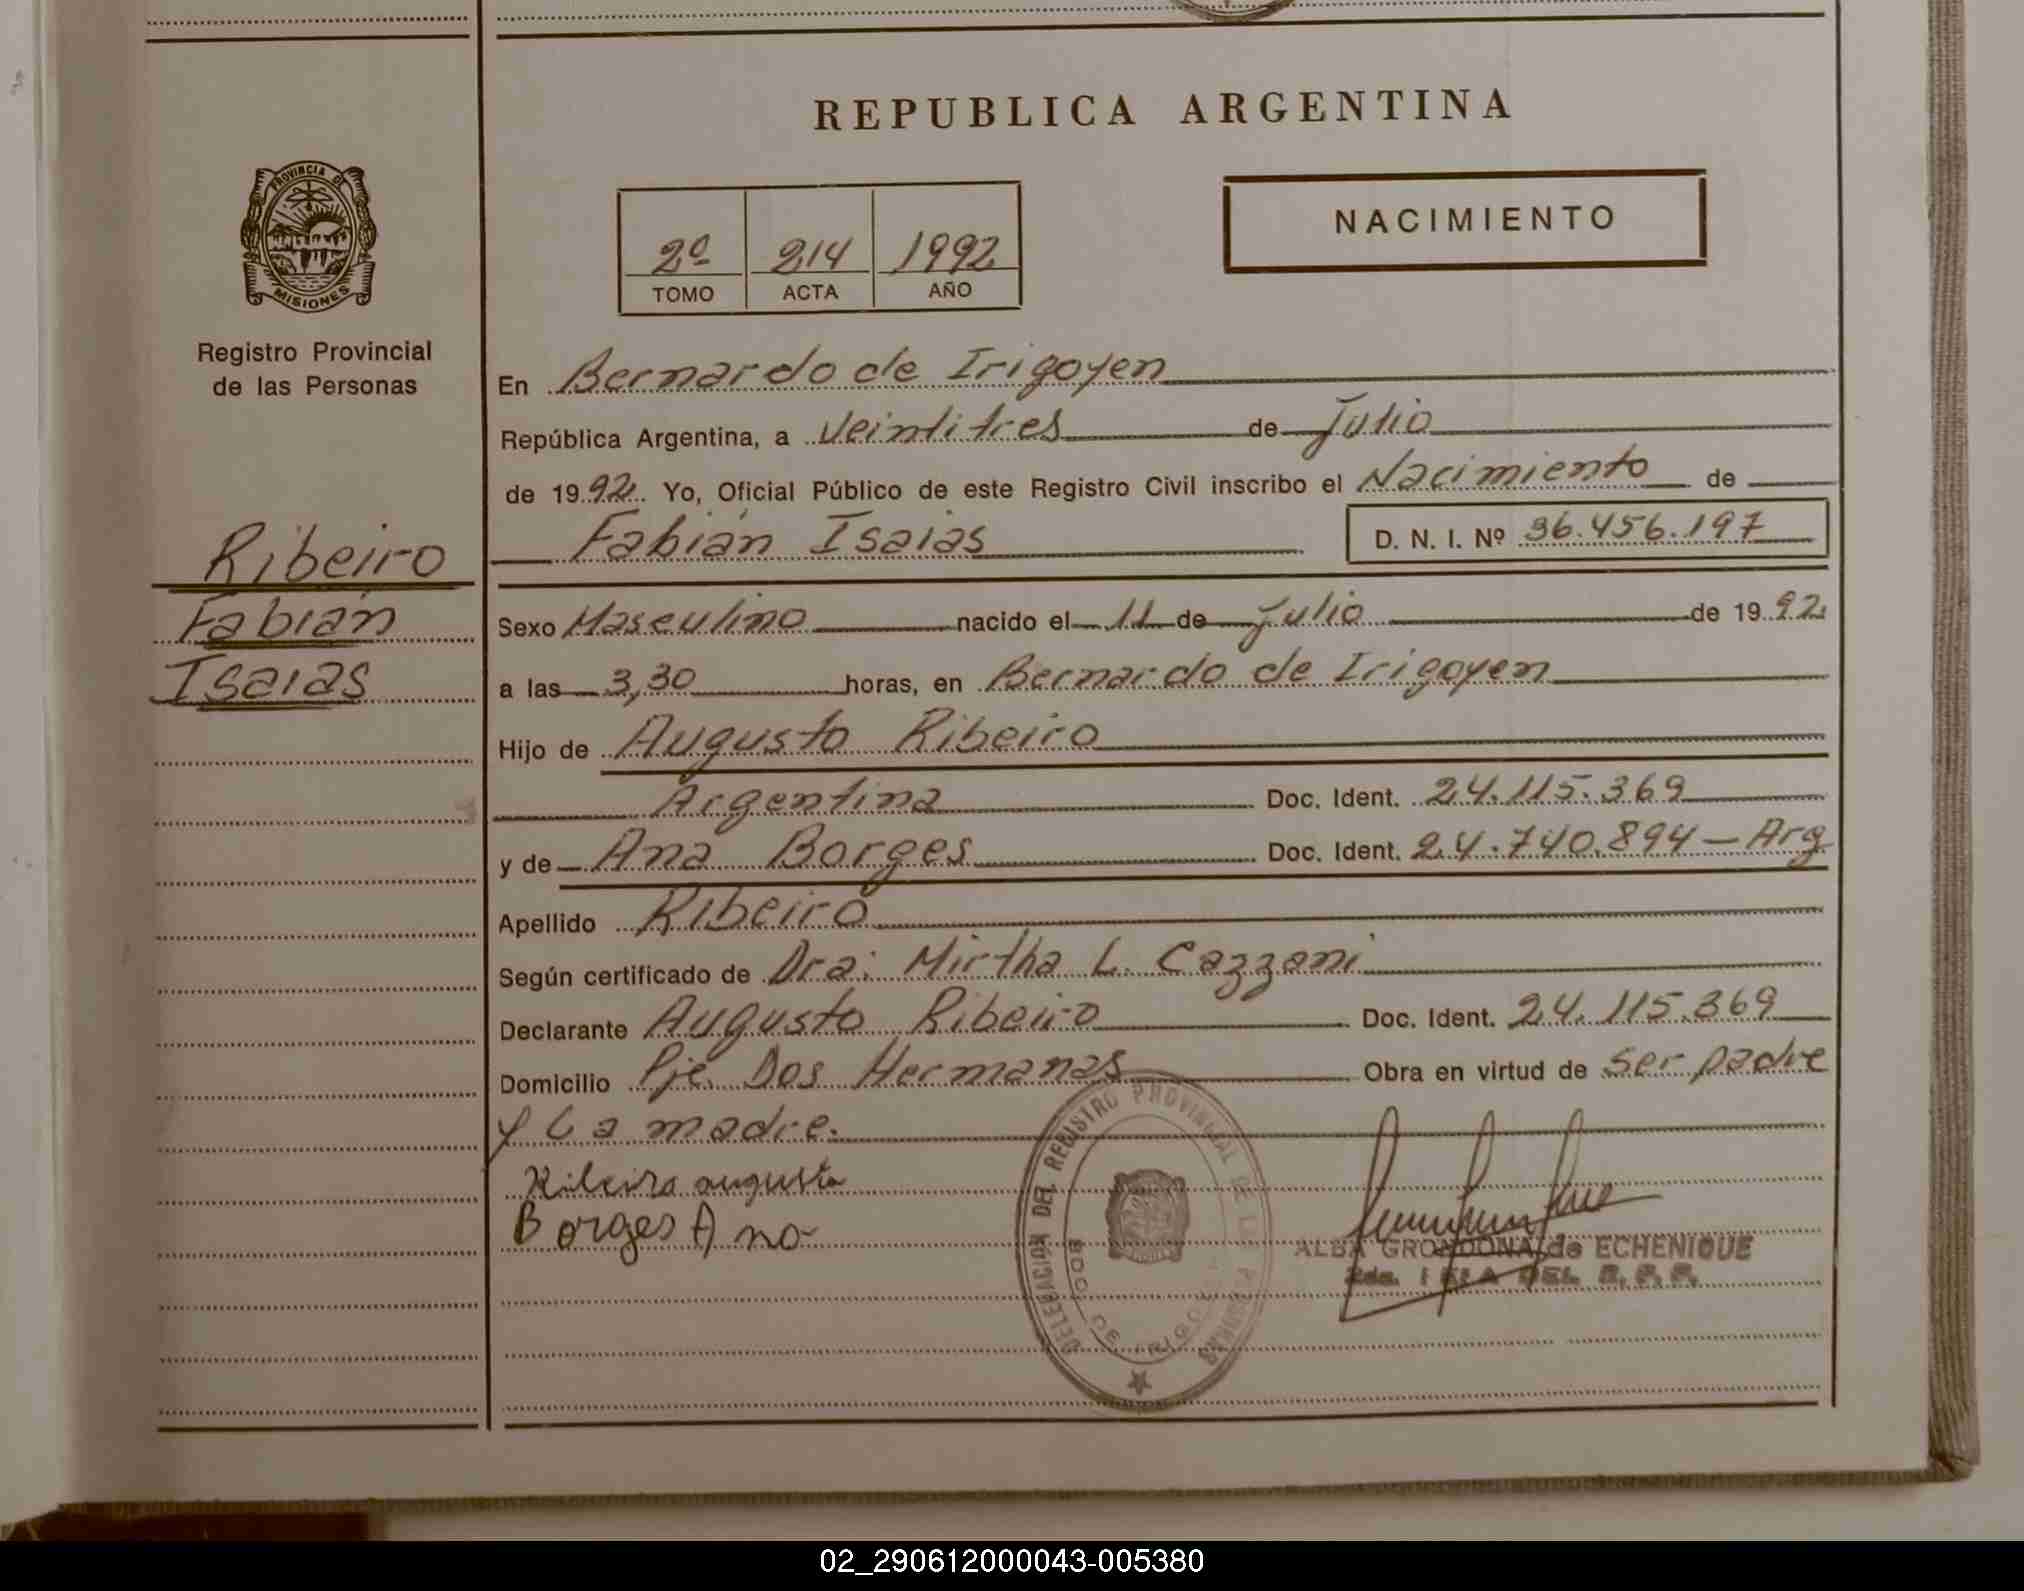 REPUBLICA ARGENTINA
PROVINCIA DE
MISIONES
Registro Provincial
de las Personas
2º 214 1992
TOMO ACTA AÑO
NACIMIENTO
Ribeiro
Fabián
Isaias
En Bernardo de Irigoyen
República Argentina, a Veintitres de Julio
de 1992 Yo, Oficial Público de este Registro Civil inscribo el Nacimiento de
Fabián Isaias D. N. I. Nº 36.456.197
Sexo Masculino nacido el 11 de Julio de 1992
a las 3,30 horas, en Bernardo de Irigoyen
Hijo de Augusto Ribeiro
Argentina Doc. Ident. 24.115.369
y de Ana Borges Doc. Ident. 24.740.894 — Arg
Apellido Ribeiro
Según certificado de Dra: Mirtha L. Cazzani
Declarante Augusto Ribeiro Doc. Ident. 24.115.369
Domicilio Pje. Dos Hermanas Obra en virtud de ser padre
y La madre.
Ribeiro augusto
Borges Ana
DELEGACION DEL REGISTRO PROVINCIAL DE LAS PERSONAS
BDO. DE IRIGOYEN
ALBA GRONDONA de ECHENIQUE
DEL R. P. P.
02_290612000043-005380